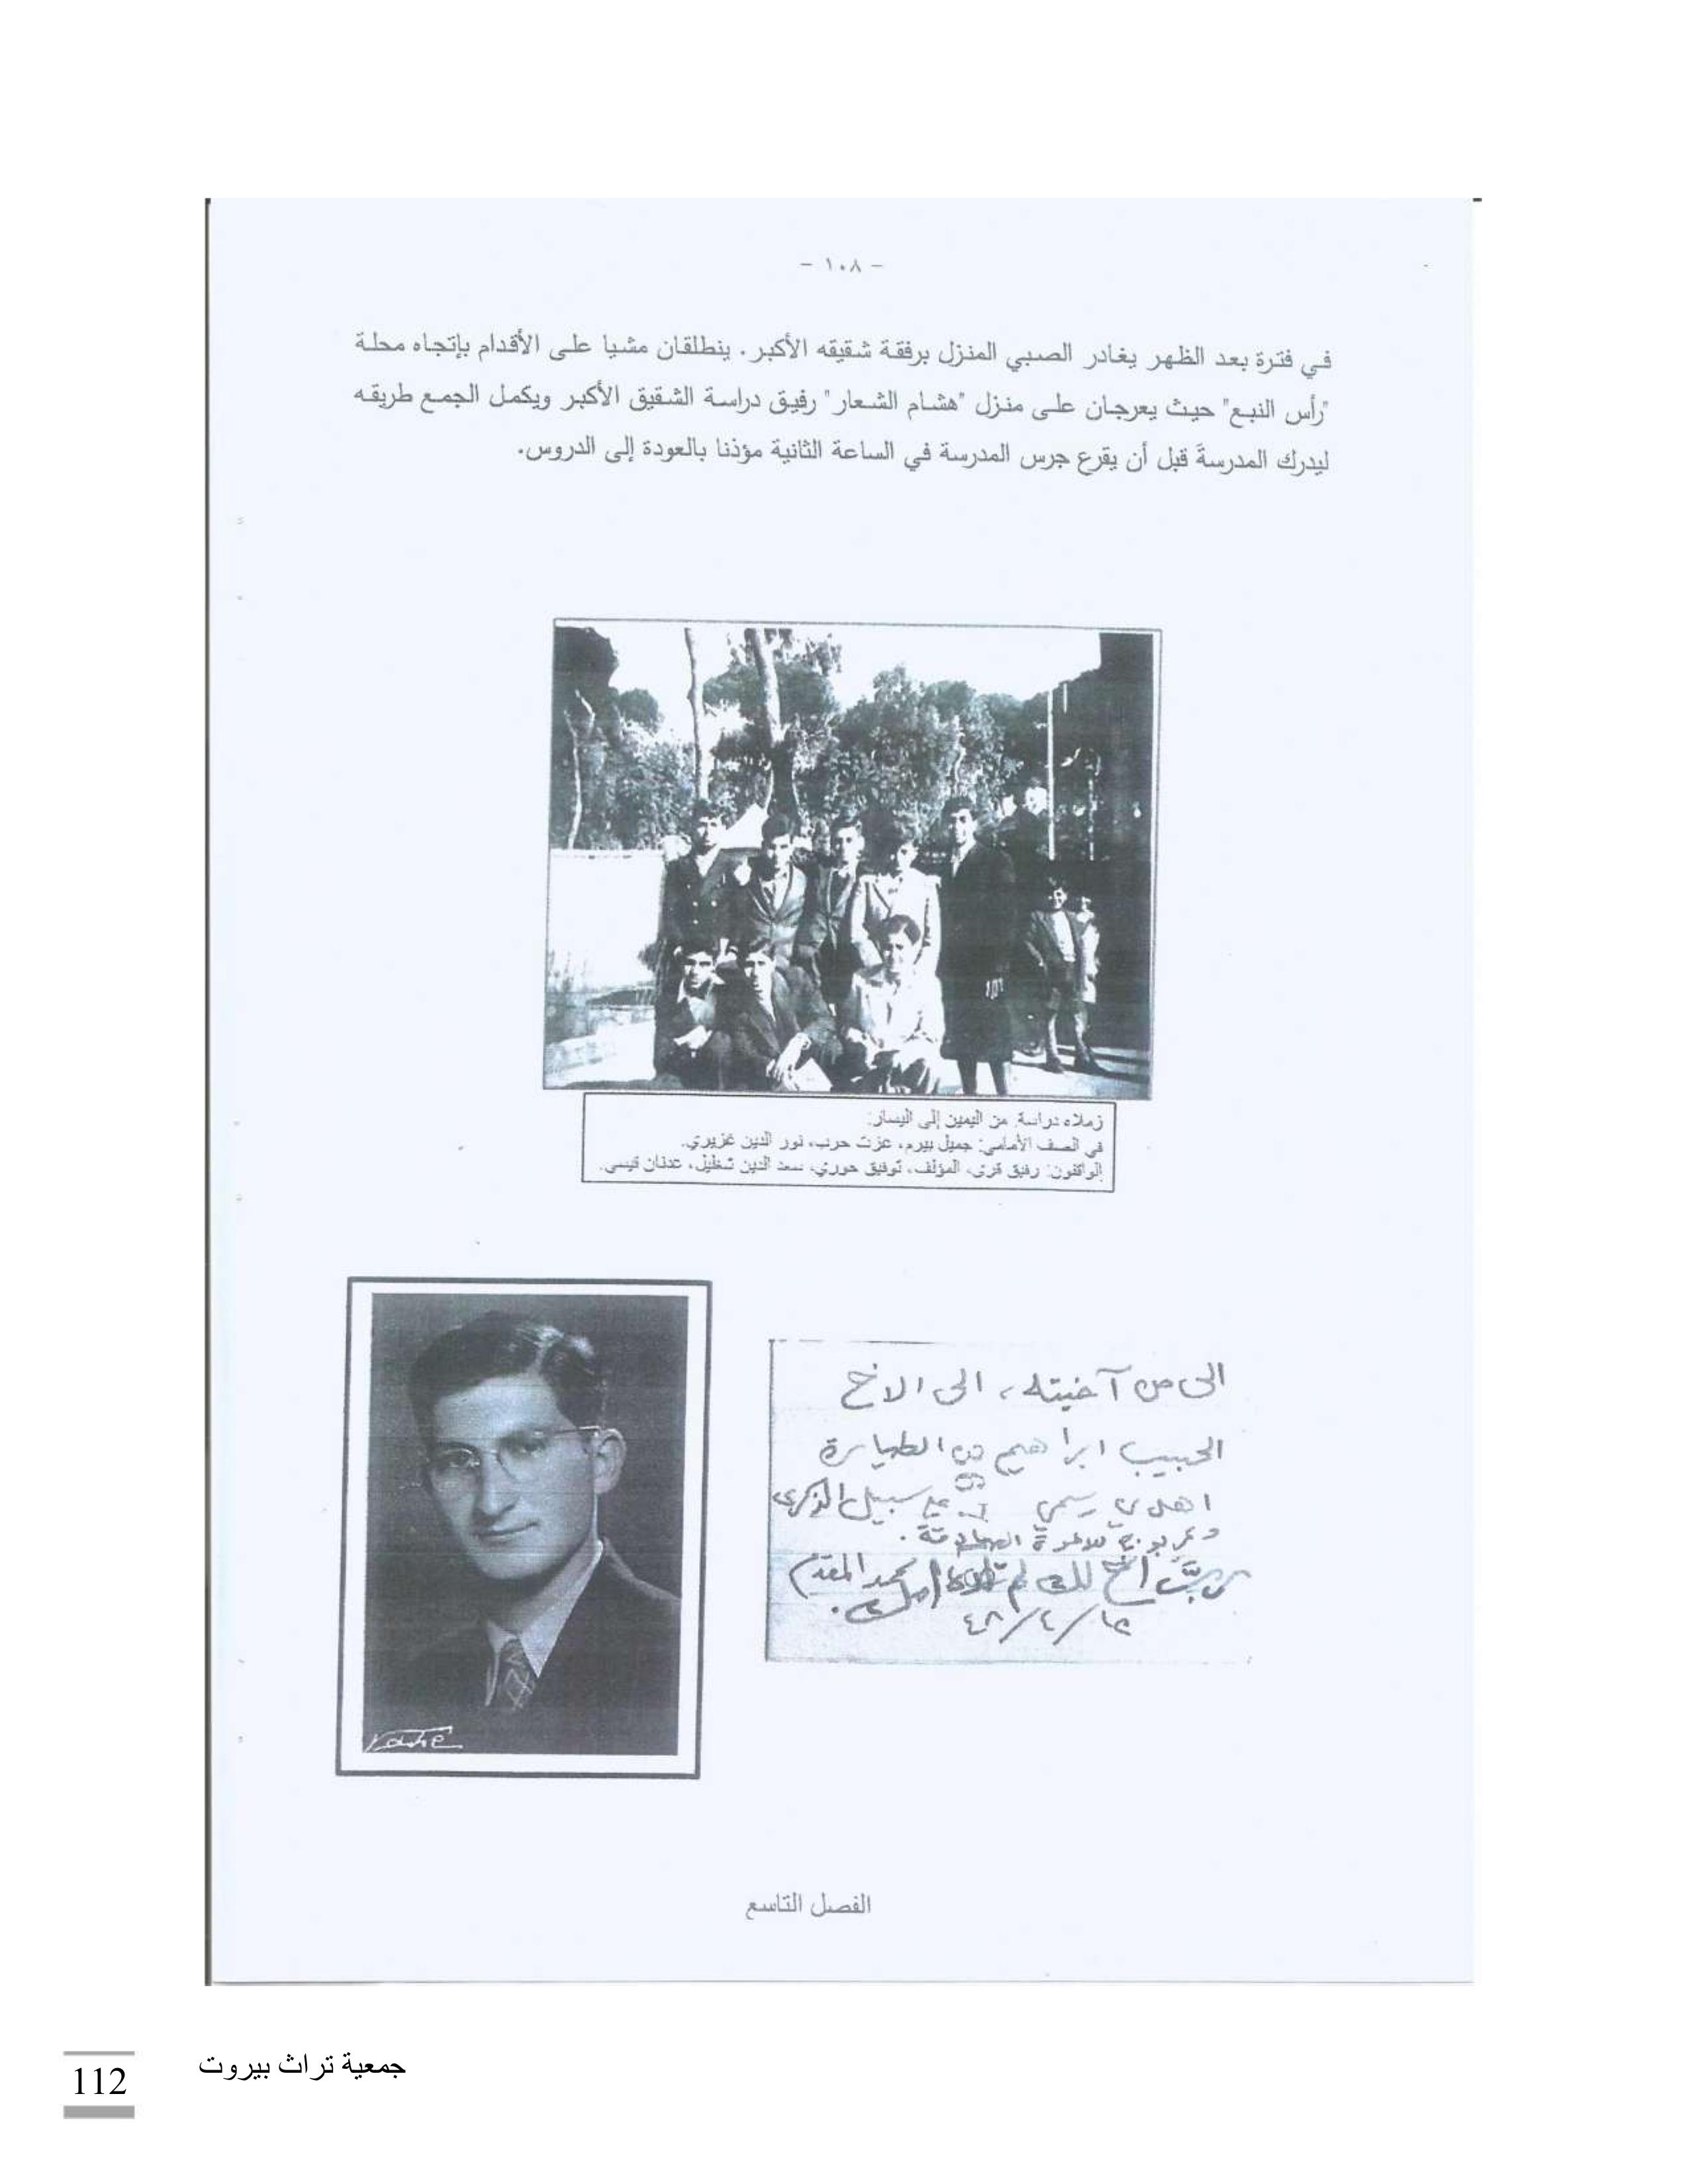 - ١٠٨ -
في فترة بعد الظهر يغادر الصبي المنزل برفقة شقيقه الأكبر. ينطلقان مشيا على الأقدام بإتجاه محلة
"رأس النبع" حيث يعرجان على منزل "هشام الشعار" رفيق دراسة الشقيق الأكبر ويكمل الجمع طريقه
ليدرك المدرسةَ قبل أن يقرع جرس المدرسة في الساعة الثانية مؤذنا بالعودة إلى الدروس.
زملاء دراسة. من اليمين إلى اليسار:
في الصف الأمامي: جميل بيرم، عزت حرب، نور الدين غزيري.
الواقفون: رفيق قرى، المؤلف، توفيق حوري، سعد الدين شغليل، عدنان قيسي.
الى من آخيته، الى الاخ
الحبيب ابراهيم من الطيارة
اهدي رسمي على سبيل الذكرى
وعربون للاخوة الصادقة.
رب اخ لك لم تلده امك. محمد المقدم
٤٨/٤/١٥
الفصل التاسع
جمعية تراث بيروت
112